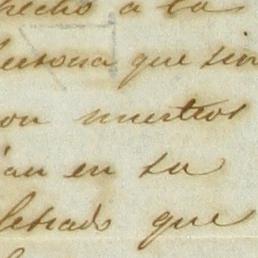 hecho a la
ersona que sien
on nuestros
ian en su
letrado que